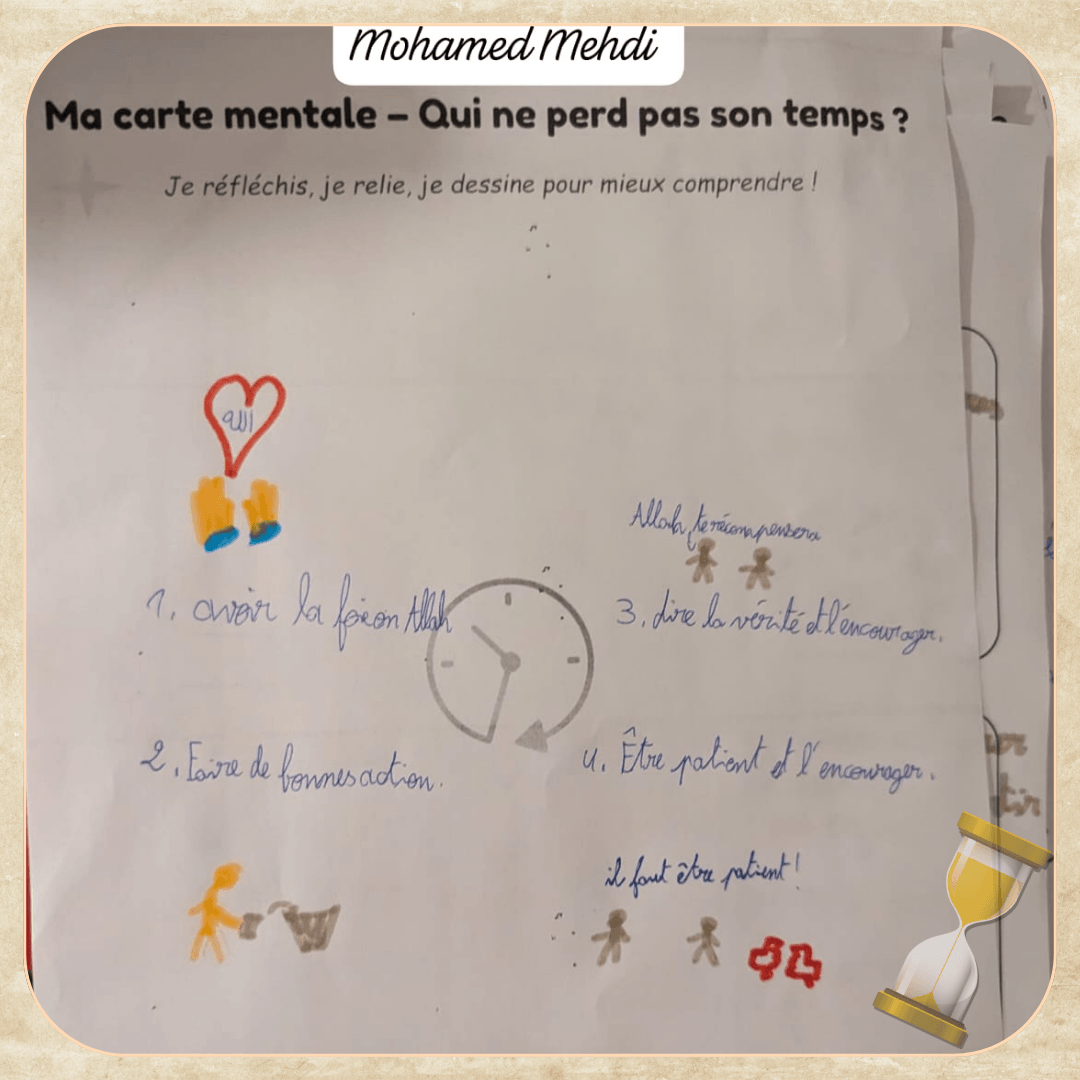 Mohamed Mehdi
Ma carte mentale – Qui ne perd pas son temps ?
Je réfléchis, je relie, je dessine pour mieux comprendre !
الله
Allah te récompensera
1. avoir la foi en Allah
3. dire la vérité et l'éncourager.
2. Faire de bonnes action.
4. Être patient et l'encourager.
il faut être patient !